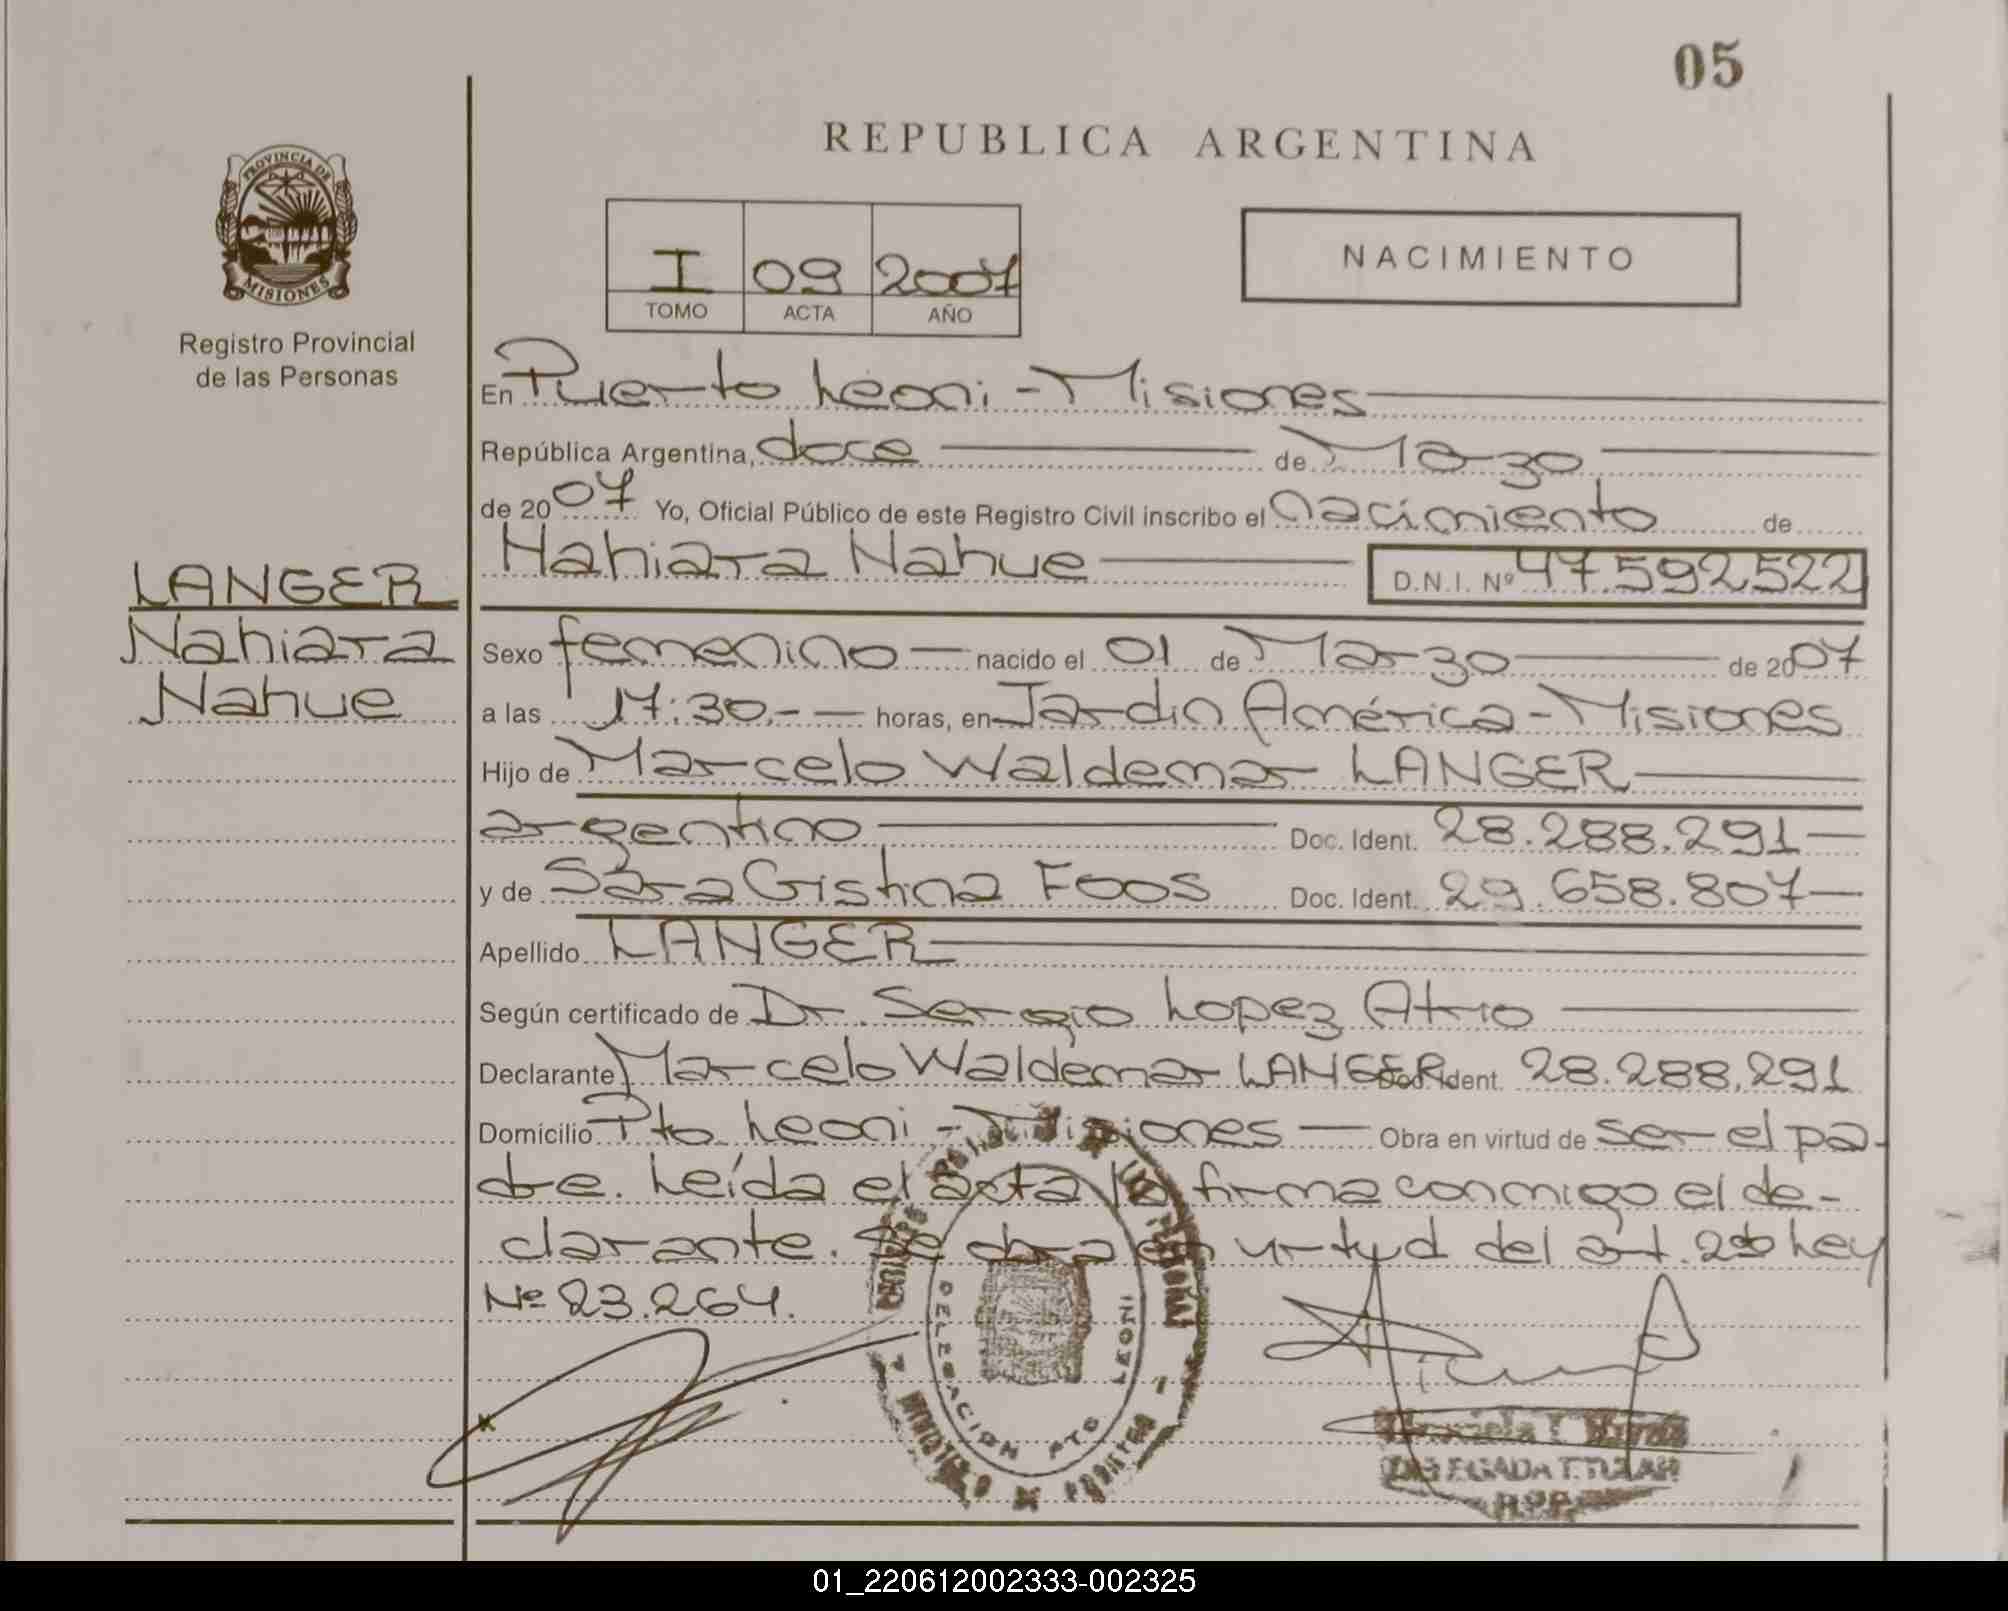 05
REPUBLICA ARGENTINA
PROVINCIA DE
MISIONES
Registro Provincial
de las Personas
I 09 2007
TOMO ACTA AÑO
NACIMIENTO
En Puerto Leoni - Misiones
República Argentina, doce de Marzo
de 2007 Yo, Oficial Público de este Registro Civil inscribo el nacimiento de
Nahiara Nahue D.N.I. Nº 47.592522
LANGER
Nahiara
Nahue
Sexo femenino nacido el 01 de Marzo de 2007
a las 17:30.- horas, en Jardin América - Misiones
Hijo de Marcelo Waldemar LANGER
argentino Doc. Ident. 28.288.291
y de Sara Cristina Foos Doc. Ident. 29.658.807
Apellido LANGER
Según certificado de Dr. Sergio Lopez Atrio
Declarante Marcelo Waldemar LANGER Doc. Ident. 28.288.291
Domicilio Pto Leoni - Misiones Obra en virtud de ser el pa-
dre. Leída el acta la firma conmigo el de-
clarante. Se obra en virtud del art. Ley
Nº 23.264.
DELEGACION PTO LEONI
DELEGADA TITULAR
R.P.P.
01_220612002333-002325